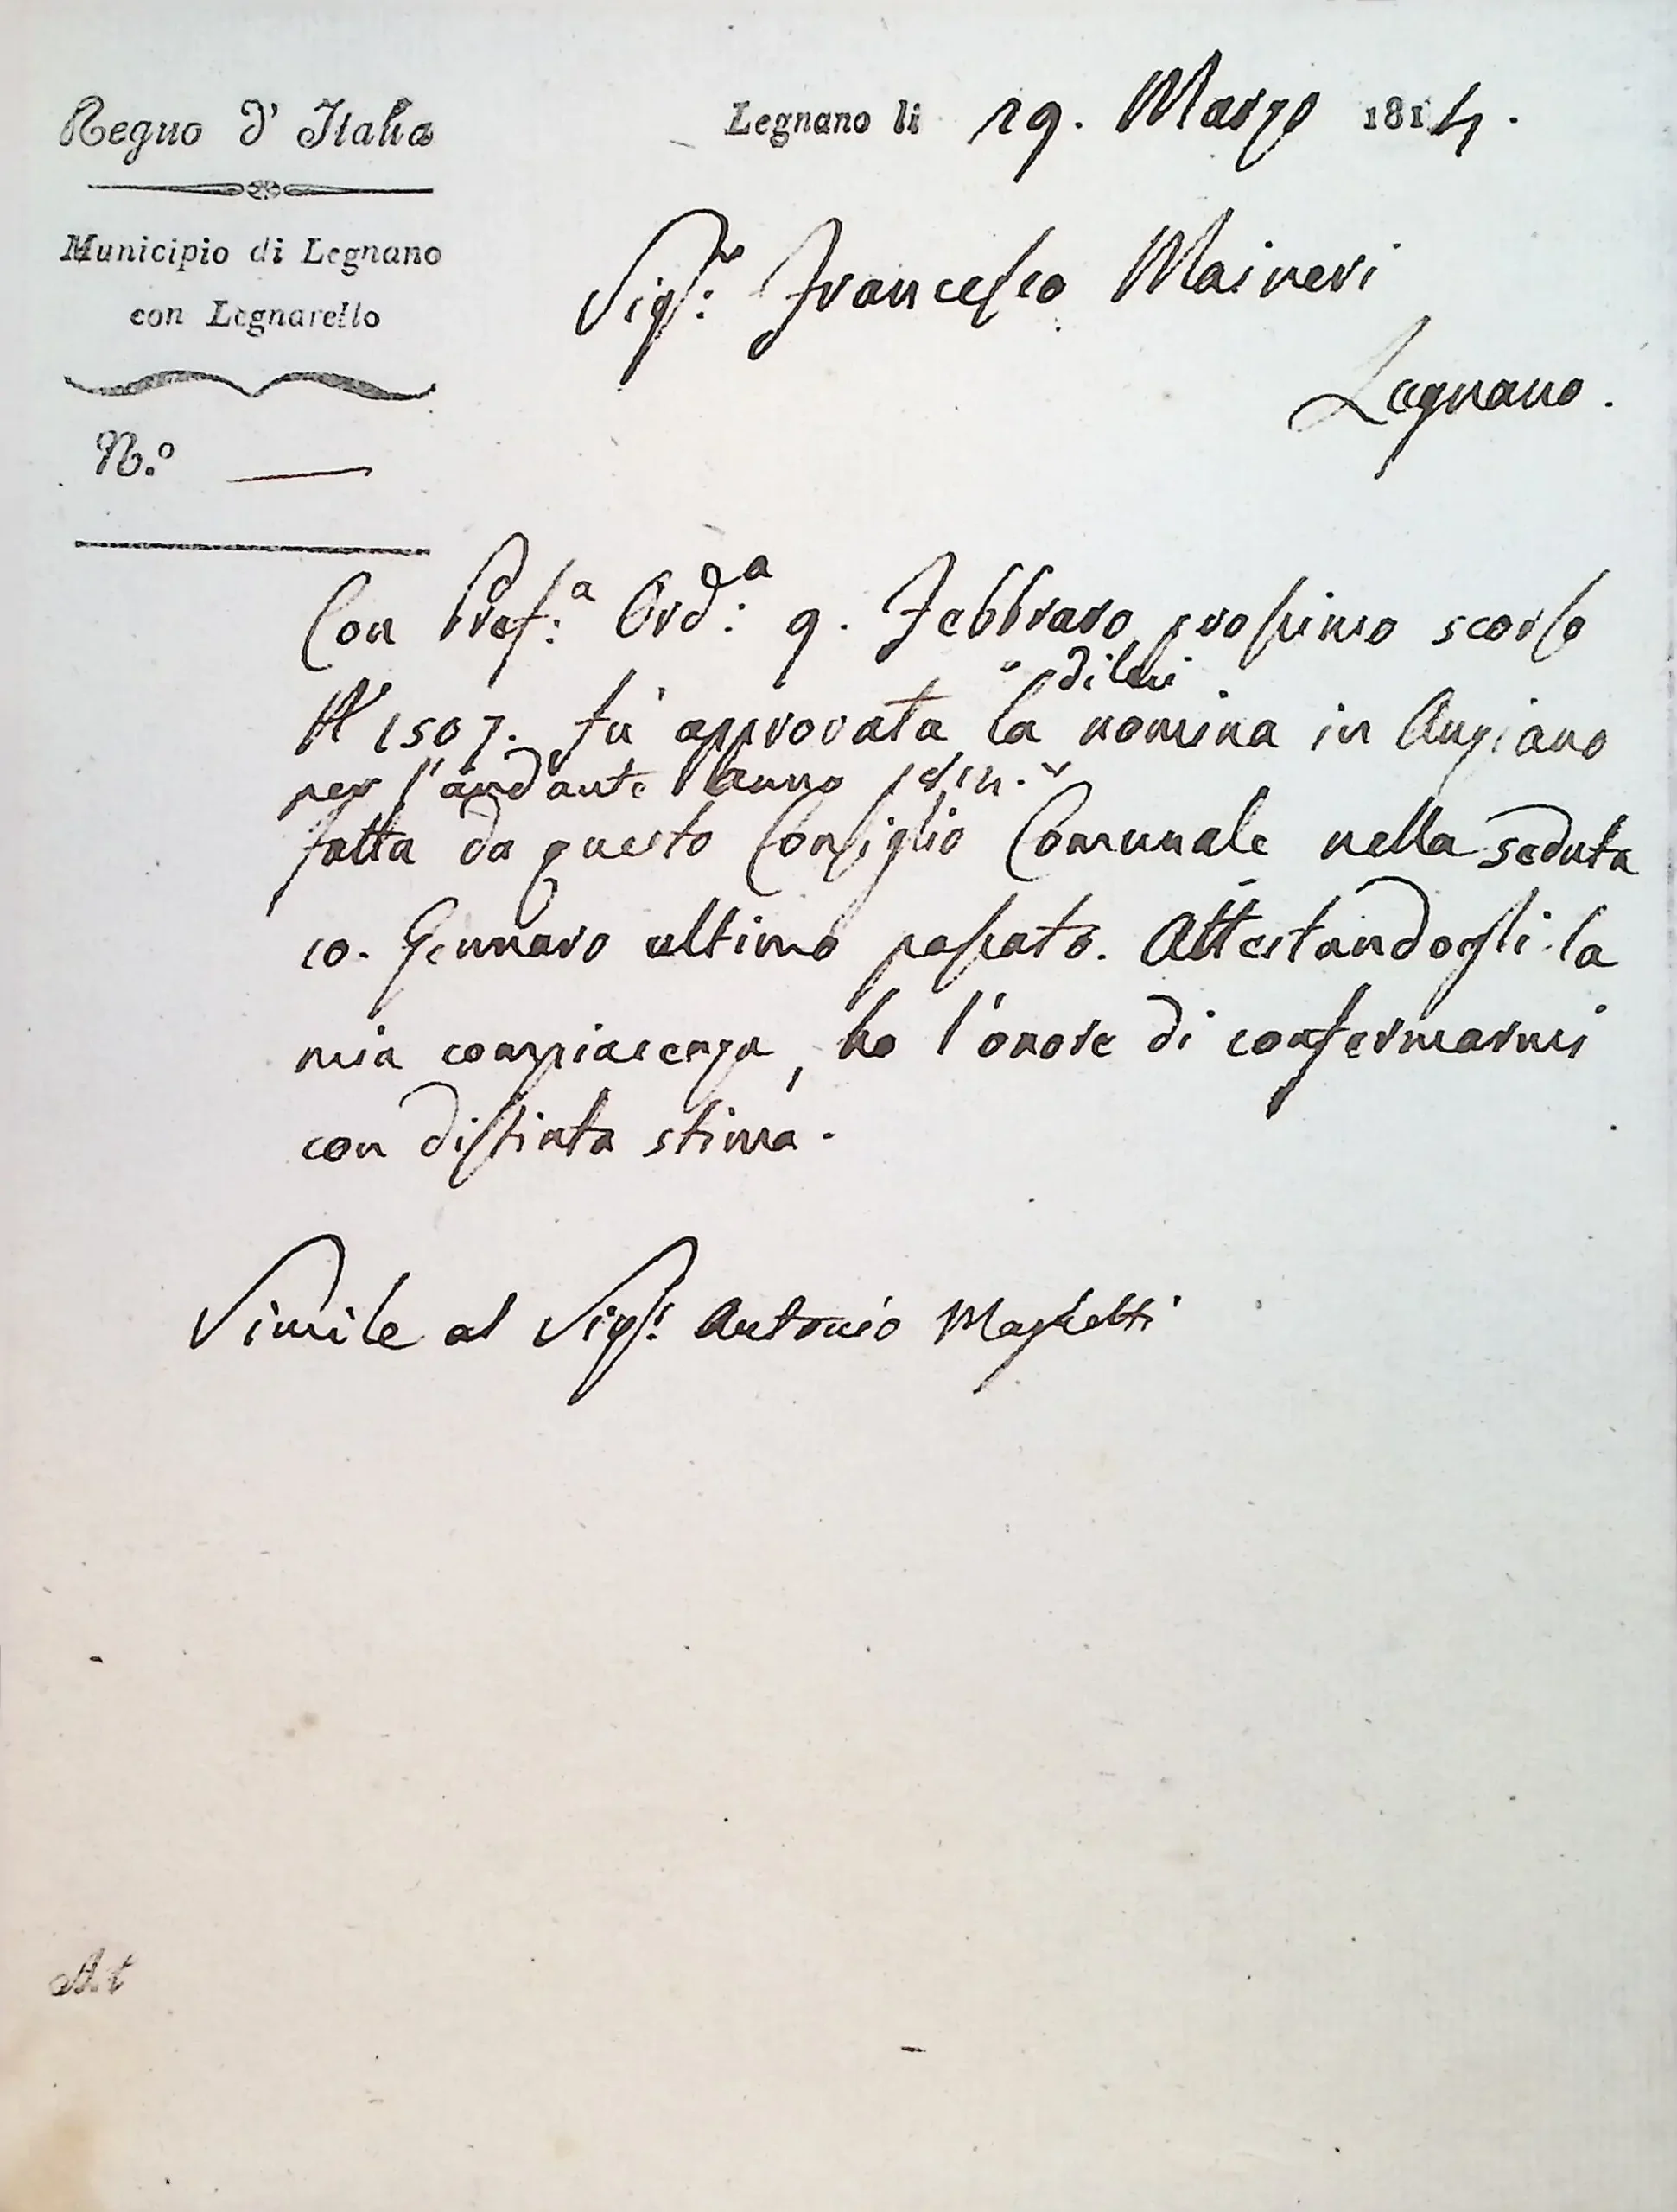 Regno d' Italia
Municipio di Legnano
con Legnarello
N.º
Legnano li 29. Marzo 1814.
Sigr: Francesco Maineri
Legnano.
Con Pref:a Ord:a 9. Febbraro prossimo scorso
N 1507. fu approvata la di lei nomina in Anziano
per l'andante anno 1814.
fatta da questo Consiglio Comunale nella seduta
10. Gennaro ultimo passato. Attestandogli la
mia compiacenza, ho l'onore di confermarmi
con distinta stima.
Simile al Sigr: Antonio